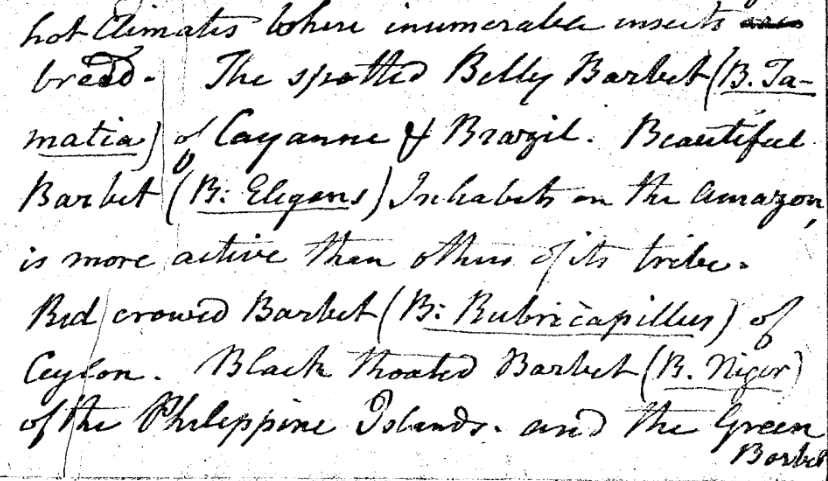 hot Climates where inumerable insects
breed. The spotted Belly Barbet (B. Ta-
matia) of Cayanne & Brazil. Beautiful
Barbet (B: Elegans) Inhabets on the Amazon,
is more active than others of its tribe.
Red crowed Barbet (B: Rubricapillus) of
Ceylon. Black thoated Barbet (B. Niger)
of the Philippine Islands. and the Green
Barbet